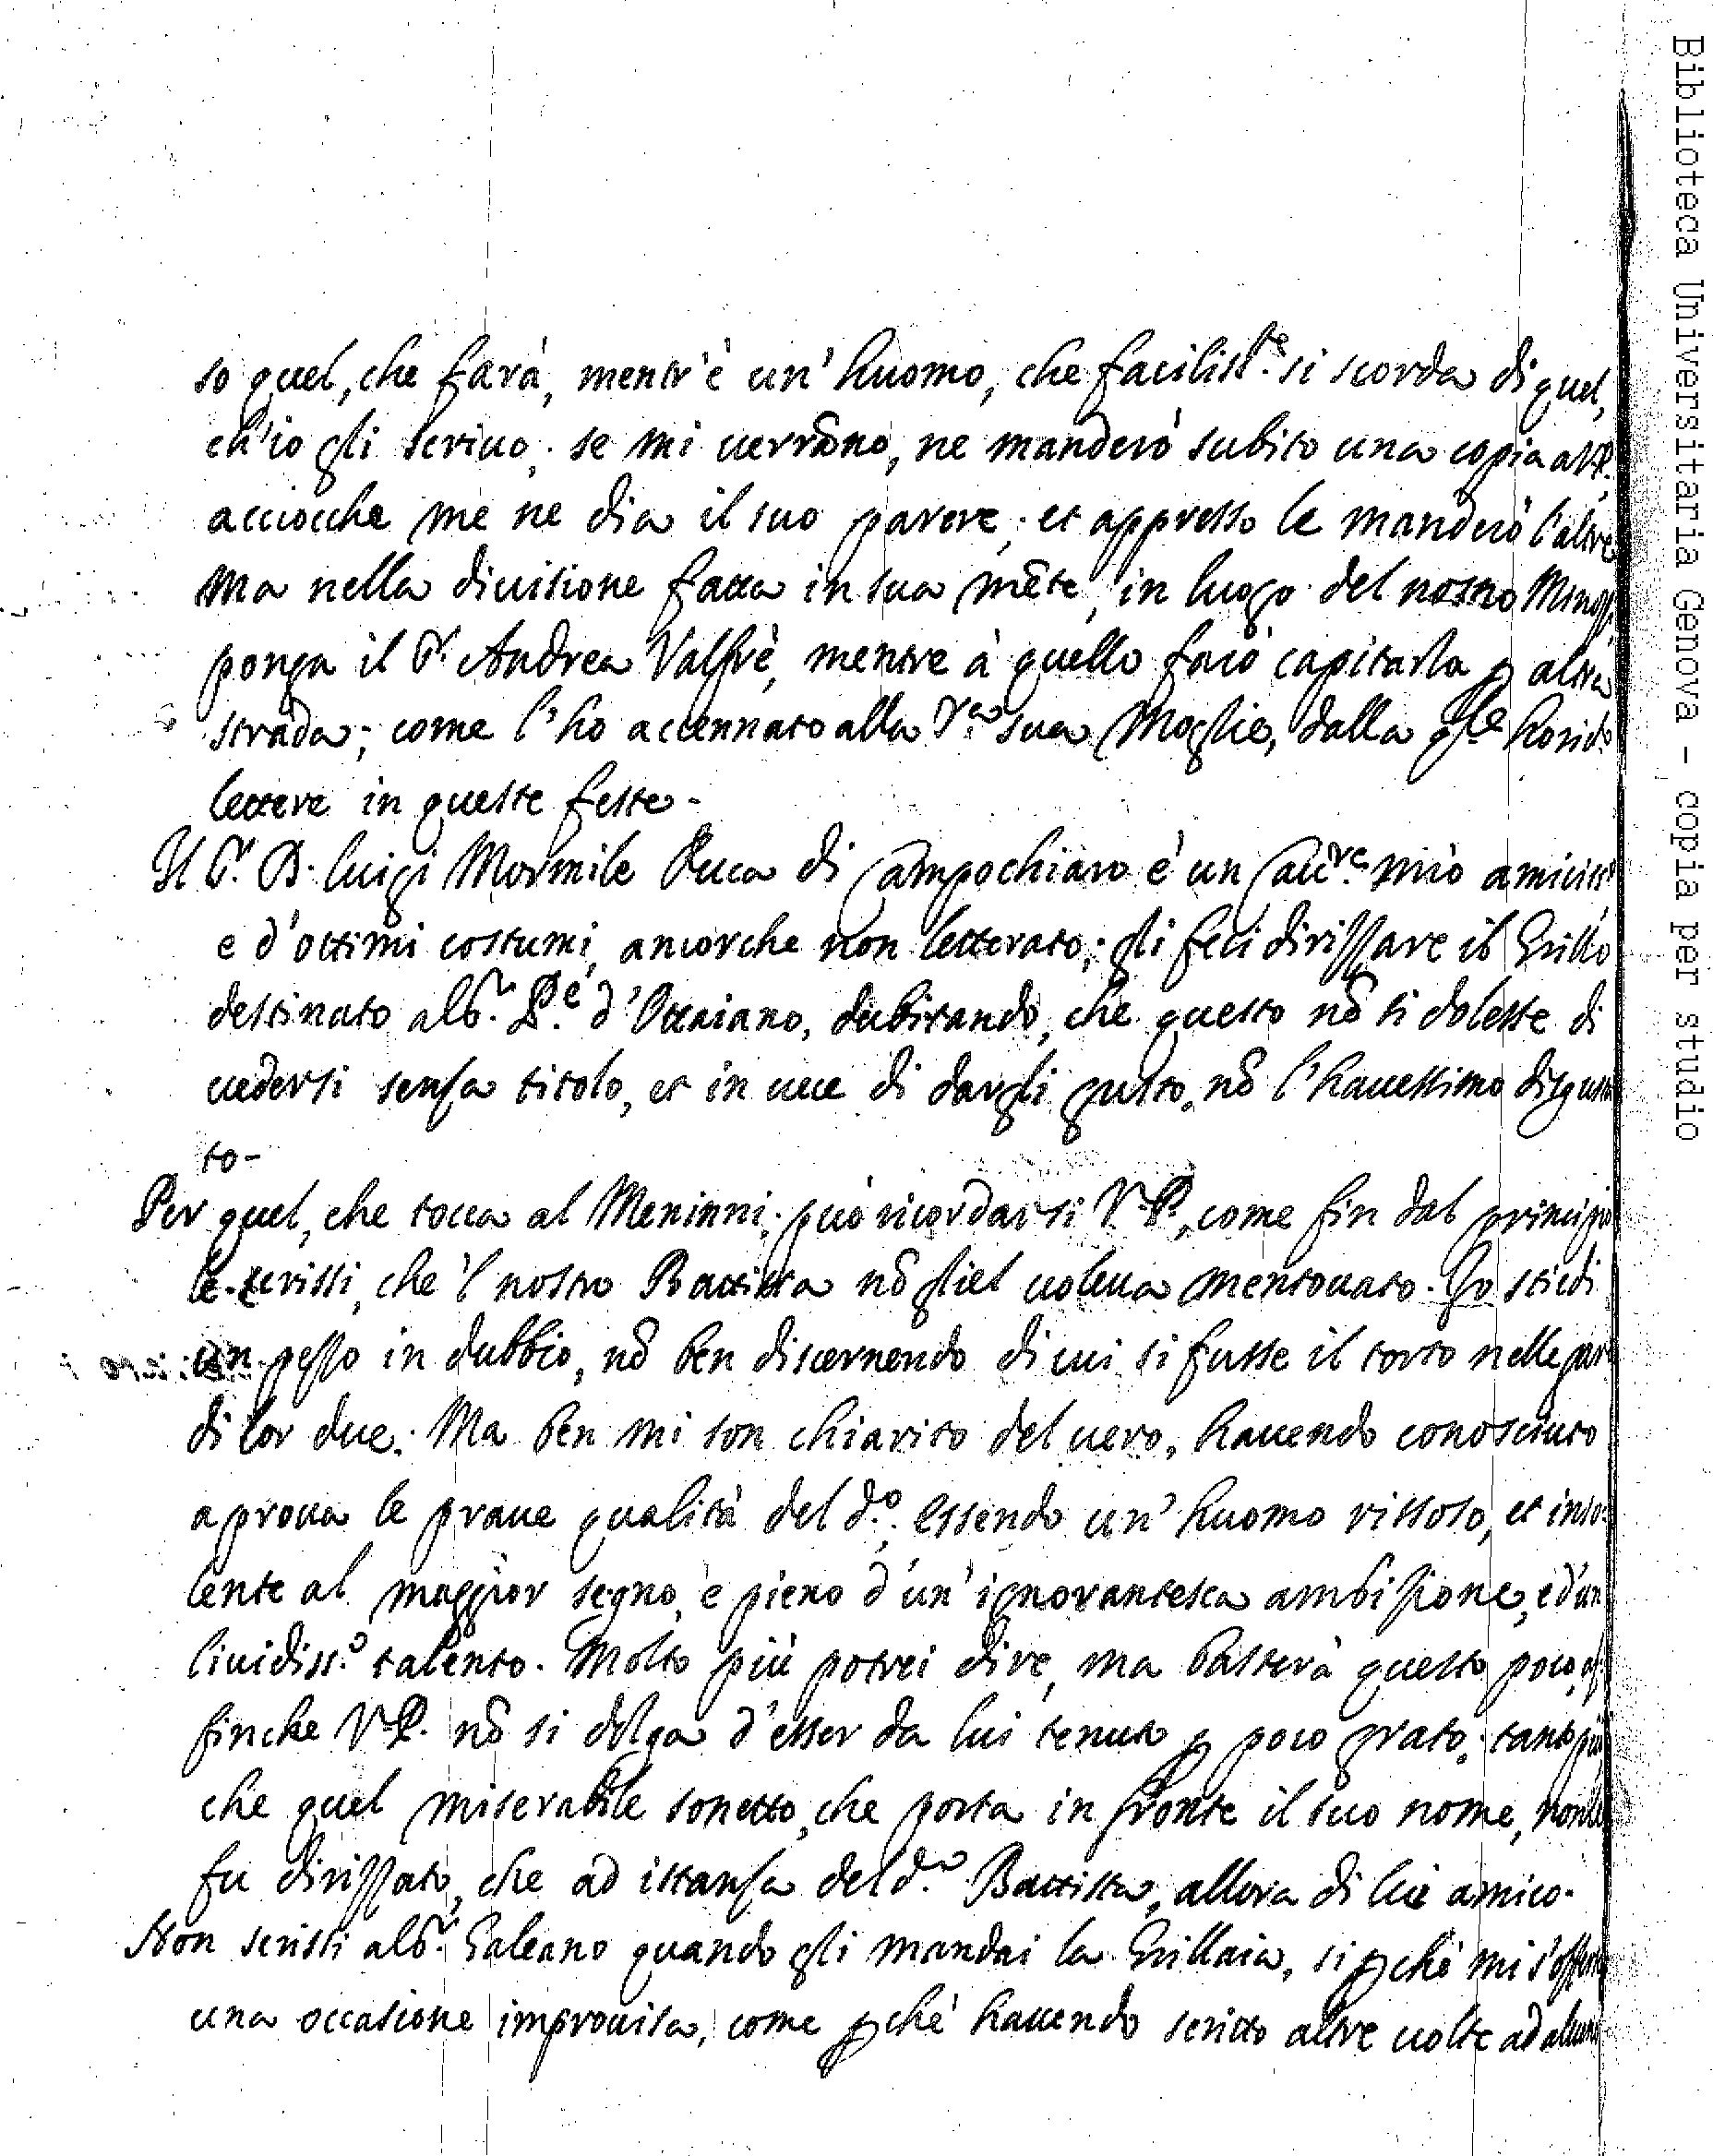 so quel, che farà, mentr'è un'huomo, che faciliss.te si scorda di quel,
ch'io gli scriuo; se mi uerrāno, ne manderò subito una copia a V.P.
acciocche me ne dia il suo parere; et appresso le manderò l'altre
Ma nella diuisione fatta in sua mēte, in luogo del nostro
ponga il S.r Andrea Valfrè, mentre à quello farò capitarla p altra
strada; come l'ho accennato alla S.ra sua Moglie, dalla q.le
lettere in queste feste.
Il S.r D. Luigi Mormile Duca di Cāmpochiaro è un Cau.re mio amiciss.
e d'ottimi costumi, ancorche non letterato; gli feci dirizzare il Grillo
destinato al S.r P.e d'Ottaiano, dubitando, che questo nō si dolesse di
uedersi senza titolo, et in uece di dargli gusto, nō l'hauessimo disgusta
to.
Per quel, che tocca al Meninni; può ricordarsi V.P., come fin dal principio
le scrissi, che 'l nostro Battista nō gliel uoleua mentouato. Io stiedi
un pezzo in dubbio, nō ben discernendo di cui si fusse il torto nelle
di lor due. Ma ben mi son chiarito del uero, hauendo conosciuto
a proua le praue qualità del d.o, essendo un'huomo rissoso, et inso-
lente al maggior segno, e pieno d'un'ignorantesca ambizione, e d'un
liuidiss.o talento. Molto più potrei dire, ma basterà questo poco,
finche V.P. nō si dolga d'esser da lui tenuto p poco grato; tanto più
che quel miserabile sonetto, che porta in fronte il suo nome, non le
fu dirizzato, che ad istanza del d.o Battista, allora di lui amico.
Non scrissi al S.r Galeano quando gli mandai la Grillaia, si pchè mi s'offerse
una occasione improuisa, come pchè hauendo scritto altre uolte ad
Biblioteca Universitaria Genova - copia per studio